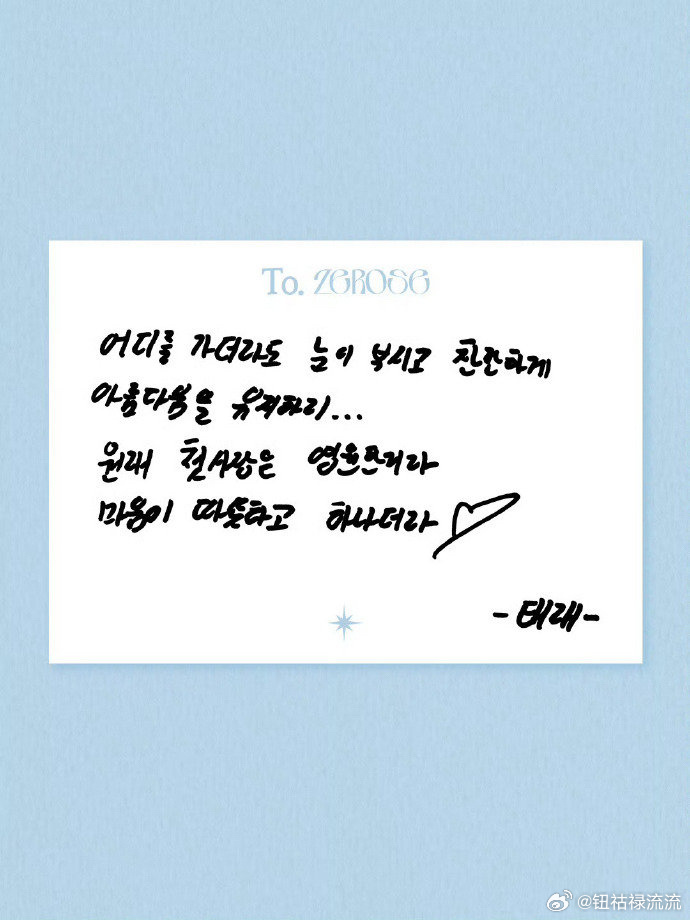 To. ZEROSE
어디를 가더라도 눈이 부시고 찬란하게
아름다움을 유지하리...
원래 첫사랑은 영원한거라
마음이 따뜻타고 하나더라
-태래-
@钮祜禄流流